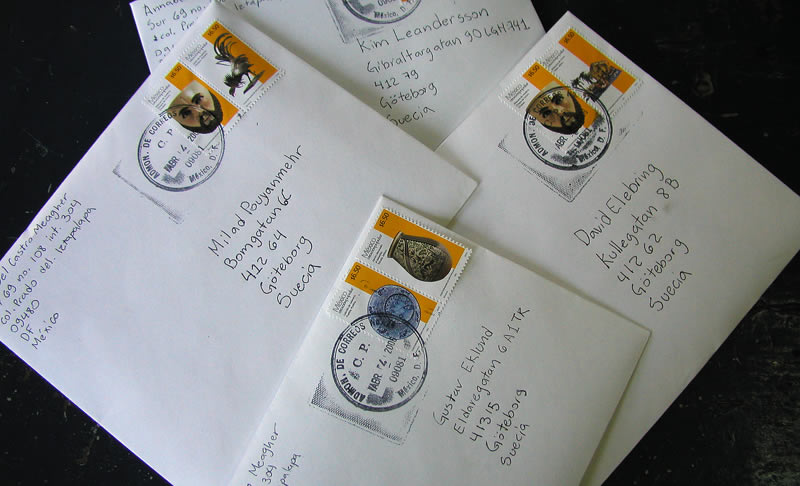 Sur 69 no.
col. Pra
Kim Leandersson
Gibraltargatan 90 LGH 741
412 79
Göteborg
Suecia
$6.50
$6.50
México
ADMON. DE CORREOS
C. P.
ABR
09081
México, D. F.
Castro Meagher
69 no. 108 int. 304
col. Prado del. Iztapalapa
09480
DF
México
Milad Pouyanmehr
Borngatan 6C
412 64
Göteborg
Suecia
ADMON. DE
ABR
México D. F.
David Elebring
Kullegatan 8B
412 62
Göteborg
Suecia
$6.50
$6.50
México
México
ADMON. DE CORREOS
C. P.
ABR
09081
México, D. F.
Gustav Eklund
Eldaregatan 6 A 1TR
41315
Göteborg
Suecia
Meagher
304